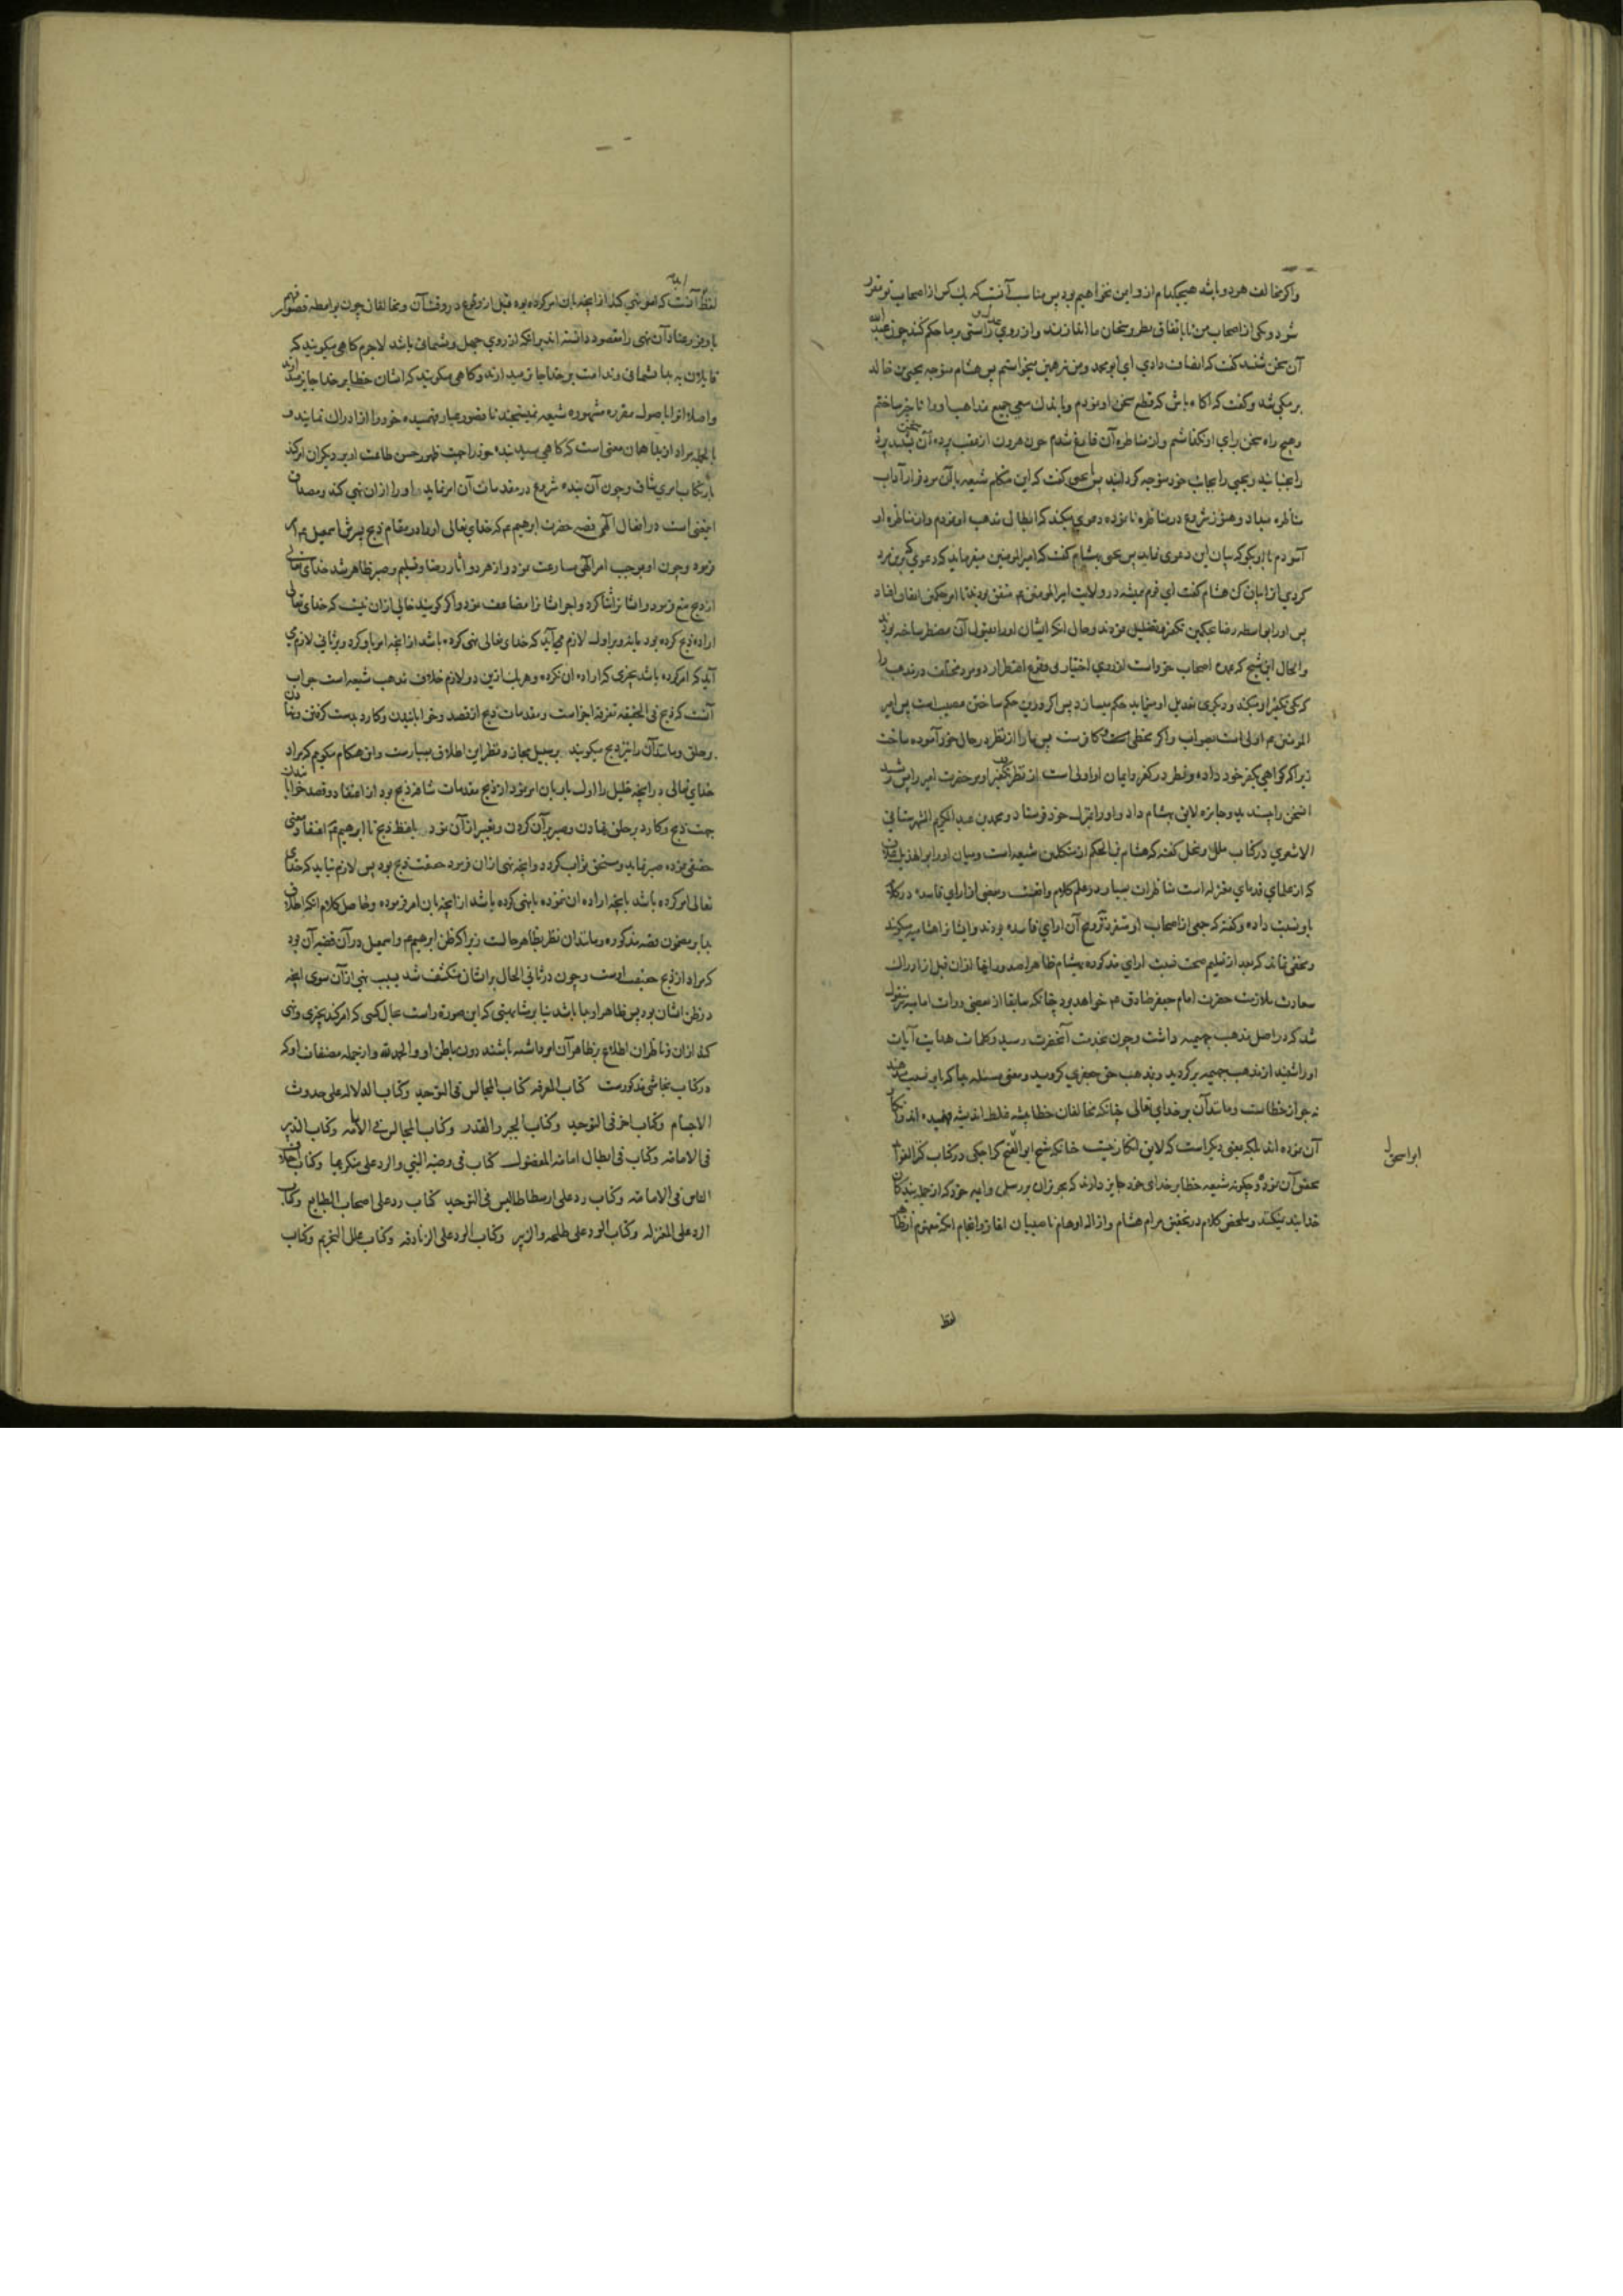 واکر مخالف هر دو باشد هیچکدام از و این نخواهیم بود پس مناسب آنست که یک کس از اصحاب تو مقرر
شود و یکی از اصحاب من تا باتفاق نظر در سخنان ما نمایند و از روی راستی بر ما حکم کنند چون عبدالله
آن سخن شنید کفت که انصاف دادی ای ابو محمد و من نیز همین میخواستم پس هشام متوجه یحیی بن خالد
برمکی شد و کفت که آکاه باش که قطع سخن او نمودم و باندک سعی جمیع مذاهب او را فاخر ساختم
و هیچ راه سخن برای او نکذاشتم و از مناظره آن فارغ شدم چون هرون از عقب پرده آن سخن شنید پرده
را بجنبانید و یحیی را بجانب خود متوجه کردانید پس باو کفت که این متکلم شیعه با آن مرد قرار آداب
مناظره میداد و هنوز شروع در مناظره نانموده دعوی میکند که ابطال مذهب او نمودم و از مناظره او
آسودم باو بکو که بیان این دعوی نماید پس یحیی بهشام کفت که امیرالمومنین میفرماید که دعوی که برین مرد
کردی از اثبات کن هشام کفت ای قوم همیشه در ولایت امیرالمومنین متفق بودند تا امر حکمین اتفاق افتاد
پس او را بواسطه رضا بحکمین تکفیر و تضلیل نمودند و حال انکه ایشان او را بقبول آن مضطر ساخته بودند
والحال این شیخ که عمده اصحاب خود است از روی اختیار بی وقوع اضطرار دو مرد مختلف در مذهب را
که یکی تکفیر او میکند و دیکری تعدیل او مینماید حکم میسازد پس اکر درین حکم ساختن مصیب است پس امیر
المومنین ع م اولی است بصواب و اکر مخطی است و کافرست پس ما را از نظر در حال خود آسوده ساخت
زیرا که کواهی بکفر خود داده و نظر در کفر و ایمان او اولی است از نظر تکفیر او بر حضرت امیر را پس رشید
این سخن را پسندید و جایزه لایق بهشام داد و او را بمنزل خود فرستاد و محمد بن عبد الکریم الشهرستانی
الاشعری در کتاب ملل و نحل کفته که هشام بن الحکم از متکلمین شیعه است و میان او و ابو الهذیل علاف
که از علمای قدمای معتزله است مناظرات بسیار در علم کلام واقعست و بعضی از ارای فاسده در کلام
باو نسبت داده و کفته که جمعی از اصحاب او متفرد بترویج آن ارای فاسده بودند و ایشانرا هشامیه میکویند
و مخفی نماند که بعد از تسلیم صحت نسبت ارای مذکوره بهشام ظاهرا صدور انها ازان قبل از ادراک
سعادت ملازمت حضرت امام جعفر صادق ع م خواهد بود چنانکه سابقا از بعضی روات امامیه منقول
شد که در اصل مذهب جهمیه داشت و چون بخدمت آنحضرت رسید و کلمات هدایت آیات
او را شنید از مذهب جهمیه برکردید و بمذهب حق جعفری کروید و معنی مسئله بدا که باو نسبت میدهند
نه جواز خطاست و مانند آن بر خدای تعالی چنانکه مخالفان خطا پیشه غلط اندیشه فهمیده اند و انکار
آن نموده اند بلکه معنی دیکر است که لایق انکار نیست چنانکه شیخ ابو الفتح کراجکی در کتاب کنز الفوائد
تحقیق آن نموده و چکونه شیعه خطا بر خدای خود جایز دارند که تجویز ان بر رسل و ایمه خود که از جمله بندکان
خدایند نمیکنند و ملخص کلام در تحقیق مرام هشام و ازاله اوهام ناصبیان اغاز و انجام انکه مفهوم از ظاهر
لفظ
ابو اسحق
لفظ آنست که امر و نهی کند از انچه بان امر کرده بود قبل از وقوع در وقت آن و مخالفان چون بواسطه قصور فهم
یا از روی عناد آن نهی را مقصود دانسته اند بر انکه از روی جهل و پشمانی باشد لاجرم کاهی میکویند که
قایلان به بدا پشمانی و ندامت بر خدا جایز میدارند و کاهی میکویند که ایشان خطا بر خدا جایز میدارند
و اصلا انرا باصول مقرره مشهوره شیعه نمیسنجند تا قصور عیار فهمیده خود را ازان ادراک نمایند و
بالجمله مراد از بدا همان معنی است که کاهی سید بنده خود را جهت ظهور حسن طاعت او بر دیکران امر کند
بارتکاب امری شاق و چون آن بنده شروع در مقدمات آن امر نماید او را ازان نهی کند و مصداق
این معنی است در افعال الهی قصه حضرت ابرهیم ع م که خدای تعالی او را در مقام ذبح پسرش اسمعیل ع م امر
فرمود و چون او بموجب امر الهی مسارعت نمود و از هر دو آثار رضا و تسلیم و صبر ظاهر شد خدای تعالی
از ذبح منع فرمود و ایشانرا ثنا کرد و اجر ایشانرا مضاعف نمود و اکر کویند خالی ازان نیست که خدای تعالی
اراده ذبح کرده بود یا نه و بر اول لازم می آید که خدای تعالی نهی کرده باشد از انچه امر باو کرده و بر ثانی لازم می
آید که امر کرده باشد بچیزی که اراده ان نکرده و هر یک ازین دو لازم خلاف مذهب شیعه است جواب
آنست که ذبح فی الحقیقه تفرقه اجزاست و مقدمات ذبح از قصد و خوابانیدن و کارد بدست کرفتن و نهادن
بر حلق و مانند آن را نیز ذبح میکویند بر سبیل مجاز و نظیر این اطلاق بسیار ست و این هنکام میکویم که مراد
خدای تعالی در انچه خلیل را اول بار بان امر نمود از ذبح مقدمات شافه ذبح بود از اعتقاد و قصد خوابانیدن
جهت ذبح و کارد بر حلق نهادن و صبر بر آن کردن و تعبیر از آن نمود بلفظ ذبح تا ابرهیم ع م اعتقاد معنی
حقیقی نموده صبر نماید و مستحق ثواب کردد و انچه نهی ازان فرمود حقیقت ذبح بود پس لازم نیاید که خدای
تعالی امر کرده باشد بانچه اراده ان ننموده یا نهی کرده باشد از انچه بان امر فرموده و حاصل کلام انکه اطلاق
بدا بر مضمون قصه مذکوره و مانند ان نظر بظاهر حالست زیرا که ظن ابرهیم ع م و اسمعیل در آن قضیه آن بود
که مراد از ذبح حقیقت اوست و چون در ثانی الحال بر ایشان منکشف شد بسبب نهی از آن سوی انچه
در ظن ایشان بود پس ظاهر او بدا باشد بنابر مشابهتی که این صورة راست بحال کسی که امر کند بچیزی و نهی
کند ازان و ناظران اطلاع بظاهر آن امر داشته باشند دون باطن او و الحمد لله و از جمله مصنفات او که
در کتاب نجاشی مذکورست کتاب المعرفه کتاب المجالس فی التوحید وکتاب الدلاله علی حدوث
الاجسام وکتاب اخر فی التوحید وکتاب الجبر والقدر وکتاب المجالس فی الامامه وکتاب التدبیر
فی الامامه وکتاب فی ابطال امامه المفضول کتاب فی وصیه النبی والرد علی منکریها وکتاب اختلاف
الناس فی الامامه وکتاب رد علی ارسطاطالیس فی التوحید کتاب رد علی اصحاب الطبایع وکتاب
الرد علی المعتزله وکتاب الرد علی طلحه والزبیر وکتاب الرد علی الزنادقه وکتاب علل التحریم وکتاب